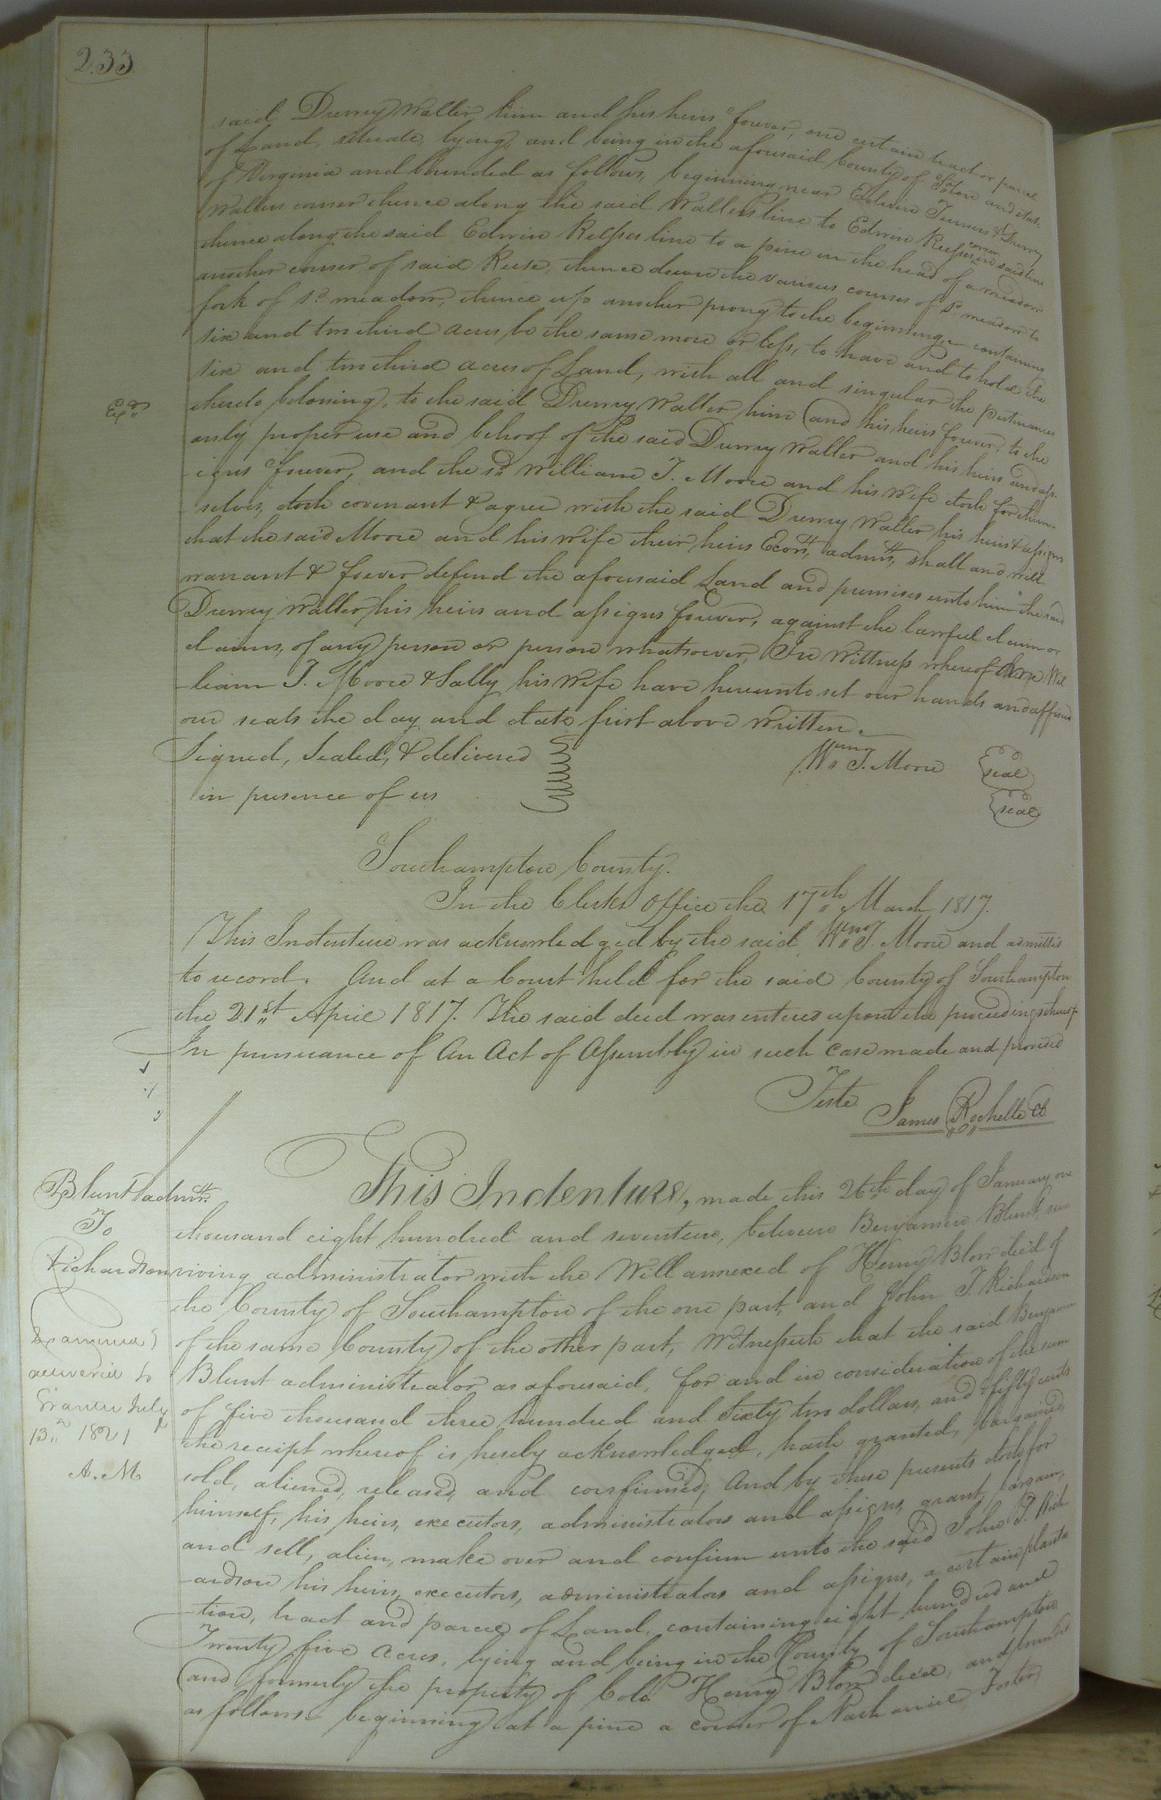 233
said Drewry Waller him and his heirs forever, one certain tract or parcel
of Land, situate, lying, and being in the aforesaid County of and State
of Virginia and bounded as follows, beginning near Edwin Turners & Drewry
Wallers corner thence along the said Wallers line to Edwin Reeses corner
thence along the said Edwin Reeses line to a pine in the head of a meadow
another corner of said Reese, thence down the various courses of sd. meadow to
fork of sd. meadow, thence up another prong to the beginning, containing
six and two third acres be the same more or less, to have and to hold the
six and two third acres of Land, with all and singular the pertinances
thereto beloning, to the said Drewry Waller him and his heirs forever, to the
only proper use and behoof of the said Drewry Waller and his heirs and ass-
igns forever, and the sd. William T. Moore and his wife doth for them-
selves, doth covenant & agree with the said Drewry Waller his heirs & assigns
that the said Moore and his wife their heirs Ecors, admrs, shall and will
warrant & forever defend the aforesaid Land and premises unto him the said
Drewry Waller his heirs and assigns forever, against the lawful claim or
claims, of any person or persons whatsoever, In Wittness whereof We Wil
-liam T. Moore & Sally his wife have hereunto set our hands and affixed
our seals the day and date first above written.
Signed, Sealed, & delivered
Wm. T. Moore seal
in presence of us
seal
Southampton County.
In the Clerks Office the 17th March 1817.
This Indenture was acknowledged by the said Wm. T. Moore and admitted
to record. And at a Court held for the said County of Southampton
the 21st April 1817. The said deed was entered upon the proceedings thereof
In pursuance of An Act of Assembly in such case made and provided
Teste James Rochelle Cl
Blunt admr.
To
Richardson
Examined &
delivered to
July
13th 1821
A. M
This Indenture, made this 26th day of January one
thousand eight hundred and seventeen, between Benjamin Blunt, sur
viving administrator with the Will annexed of Henry Blow dec'd of
the County of Southampton of the one part, and John T. Richardson
of the same County of the other part, Witnesseth that the said Benjamin
Blunt administrator as aforesaid, for and in consideration of the sum
of five thousand three hundred and sixty two dollars, and fifty cents
the receipt whereof is hereby acknowledged, hath granted, bargained
sold, aliened, released, and confirmed; And by these presents doth for
himself, his heirs, executors, administrators and assigns, grant, bargain,
and sell, alien, make over and confirm unto the said John T. Rich
-ardson his heirs, executors, administrators and assigns, a certain planta
-tion, tract and parcel of Land, containing eight hundred and
Twenty five Acres, lying and being in the County of Southampton
and formerly the property of Colo. Henry Blow decd, and bounded
as follows beginning at a pine a corner of Nathaniel Foster